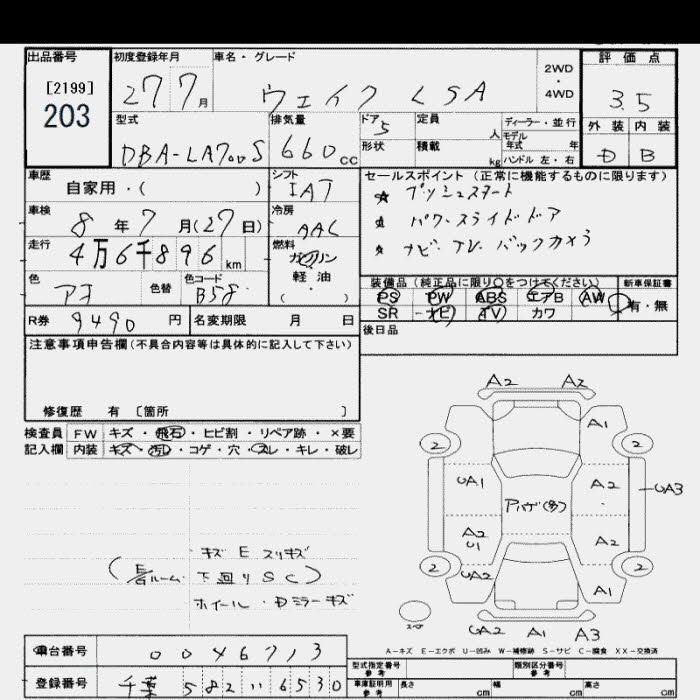 出品番号
[2199]
203
初度登録年月
27 7月
車名・グレード
ウェイク LSA
2WD・4WD
評価点
3.5
外装 内装
D B
型式
DBA-LA700S
排気量
660cc
ドア 5
形状
定員 人
積載 kg
ディーラー・並行
モデル年式 年
ハンドル 左・右
車歴
自家用・( )
シフト
IAT
車検
8年7月(27日)
冷房
AAC
走行
4万6千896km
燃料
ガソリン
軽・油
( ・ )
色
アヲ
色替
色コード
B58
R券 9490円
名変期限 月 日
セールスポイント (正常に機能するものに限ります)
☆ プッシュスタート
☆ パワースライドドア
☆ ナビ、TV、バックカメラ
装備品 (純正品に限り○をつけてください)
PS PW ABS エアB AW
SR ナビ TV カワ
新車保証書
有・無
後日品
注意事項申告欄(不具合内容等は具体的に記入して下さい)
修復歴 有 〔箇所 〕
検査員記入欄
FW キズ・飛石・ヒビ割・リペア跡・×要
内装 キズ・汚レ・コゲ・穴・スレ・キレ・破レ
キズ E スリキズ
(E/Gルーム 下回りSC)
ホイール・Dミラーキズ
A2 A2
A1
2 2
UA1 A2 UA3
アバゲ(多)
A2
U1
A2
2 2
UA2 A1
UA2 A1 A3
A-キズ E-エクボ U-凹み W-補修跡 S-サビ C-腐食 XX-交換済
車台番号 0046713
登録番号 千葉 582 い 6530
型式指定番号 参考
類別区分番号 参考
車庫証明用 参考
長さ cm
幅 cm
高さ cm